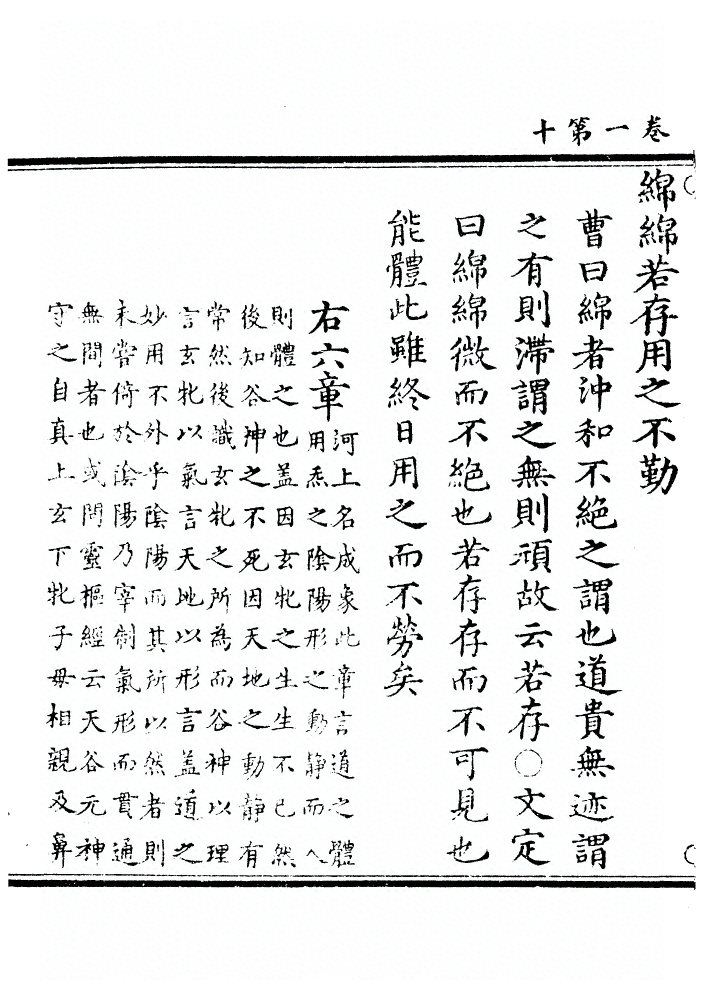 卷一第十
綿綿若存用之不勤
曹曰綿者沖和不絶之謂也道貴無迹謂
之有則滯謂之無則頑故云若存○文定
曰綿綿微而不絶也若存存而不可見也
能體此雖終日用之而不勞矣
右六章河上名成象此章言道之體
用炁之陰陽形之動静而人
則體之也盖因玄牝之生生不已然
後知谷神之不死因天地之動静有
常然後識玄牝之所為而谷神以理
言玄牝以氣言天地以形言盖道之
妙用不外乎陰陽而其所以然者則
未嘗倚於陰陽乃宰制氣形而貫通
無間者也或問靈樞經云天谷元神
守之自真上玄下牝子母相親及鼻